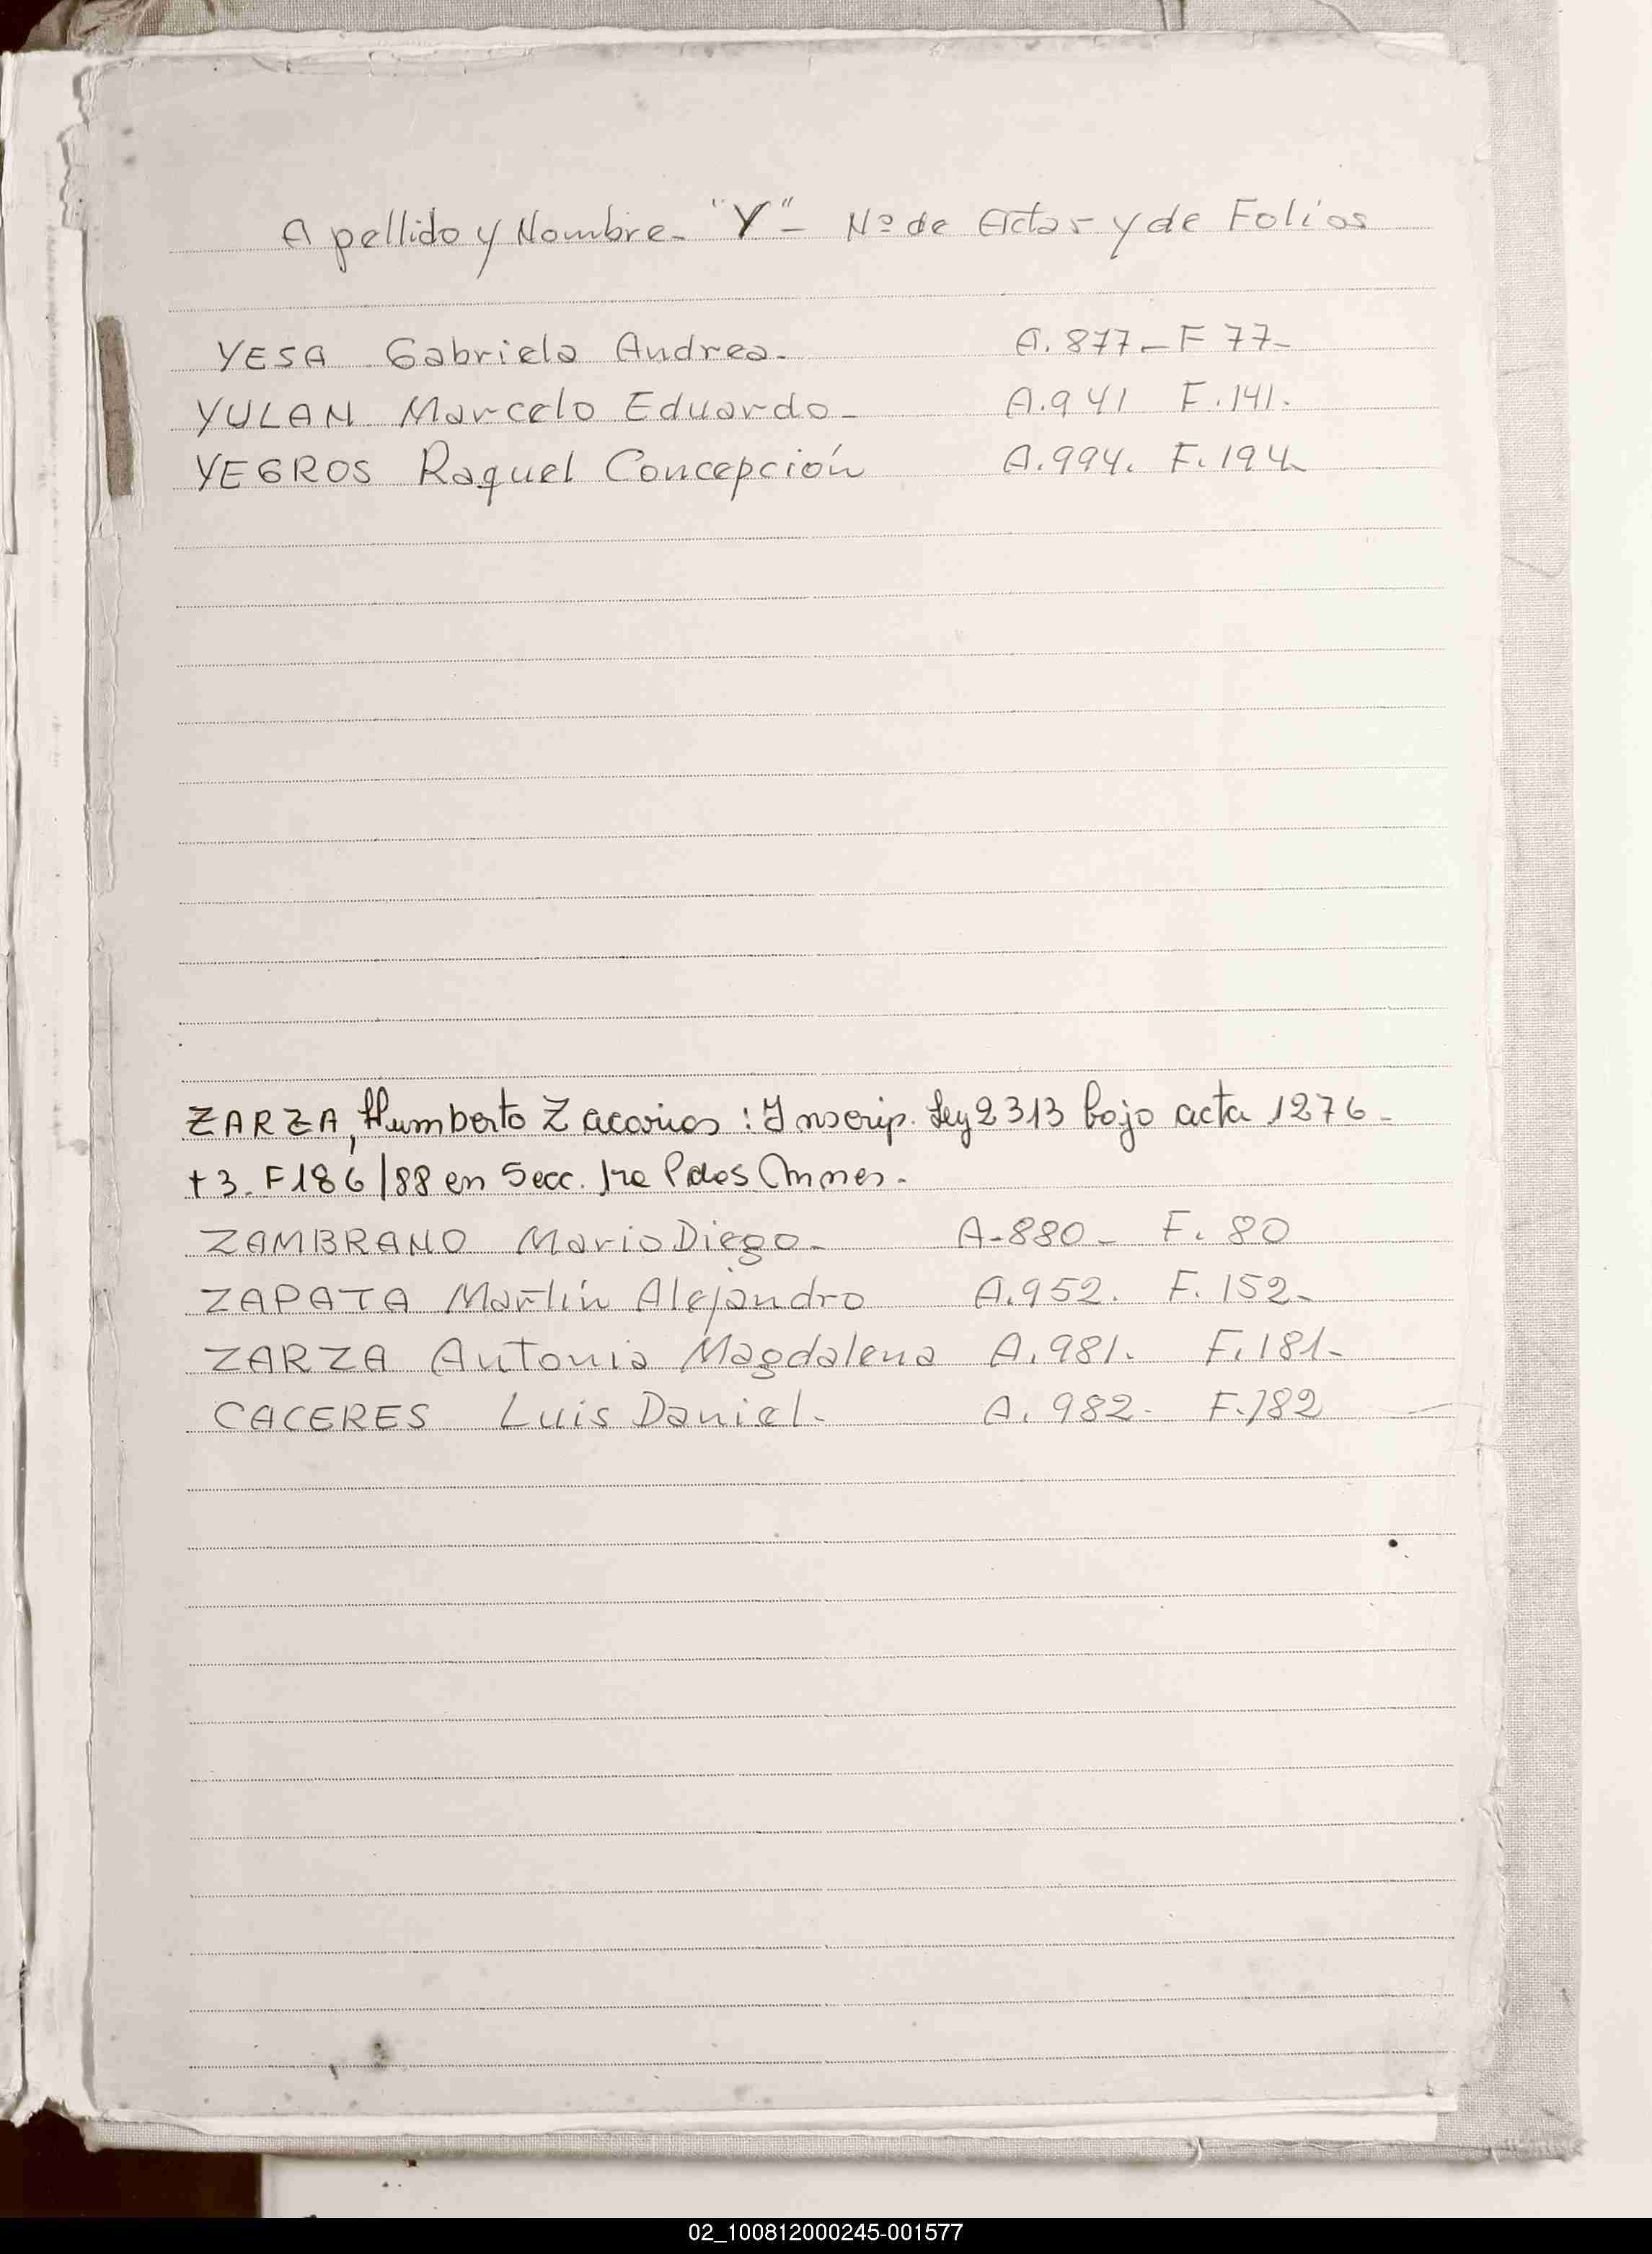 Apellido y Nombre- "Y"- Nº de Actas y de Folios
YESA Gabriela Andrea- A. 877- F 77-
YULAN Marcelo Eduardo- A.941 F.141.
YEGROS Raquel Concepción A.994. F.194
ZARZA, Humberto Zacarias: Inscrip. Ley 2313 bajo acta 1276-
t 3. F186/88 en Secc. 1ra
ZAMBRANO Mario Diego- A-880- F. 80
ZAPATA Martín Alejandro A.952. F. 152-
ZARZA Antonia Magdalena A.981. F.181-
CACERES Luis Daniel- A. 982- F.182
02_100812000245-001577